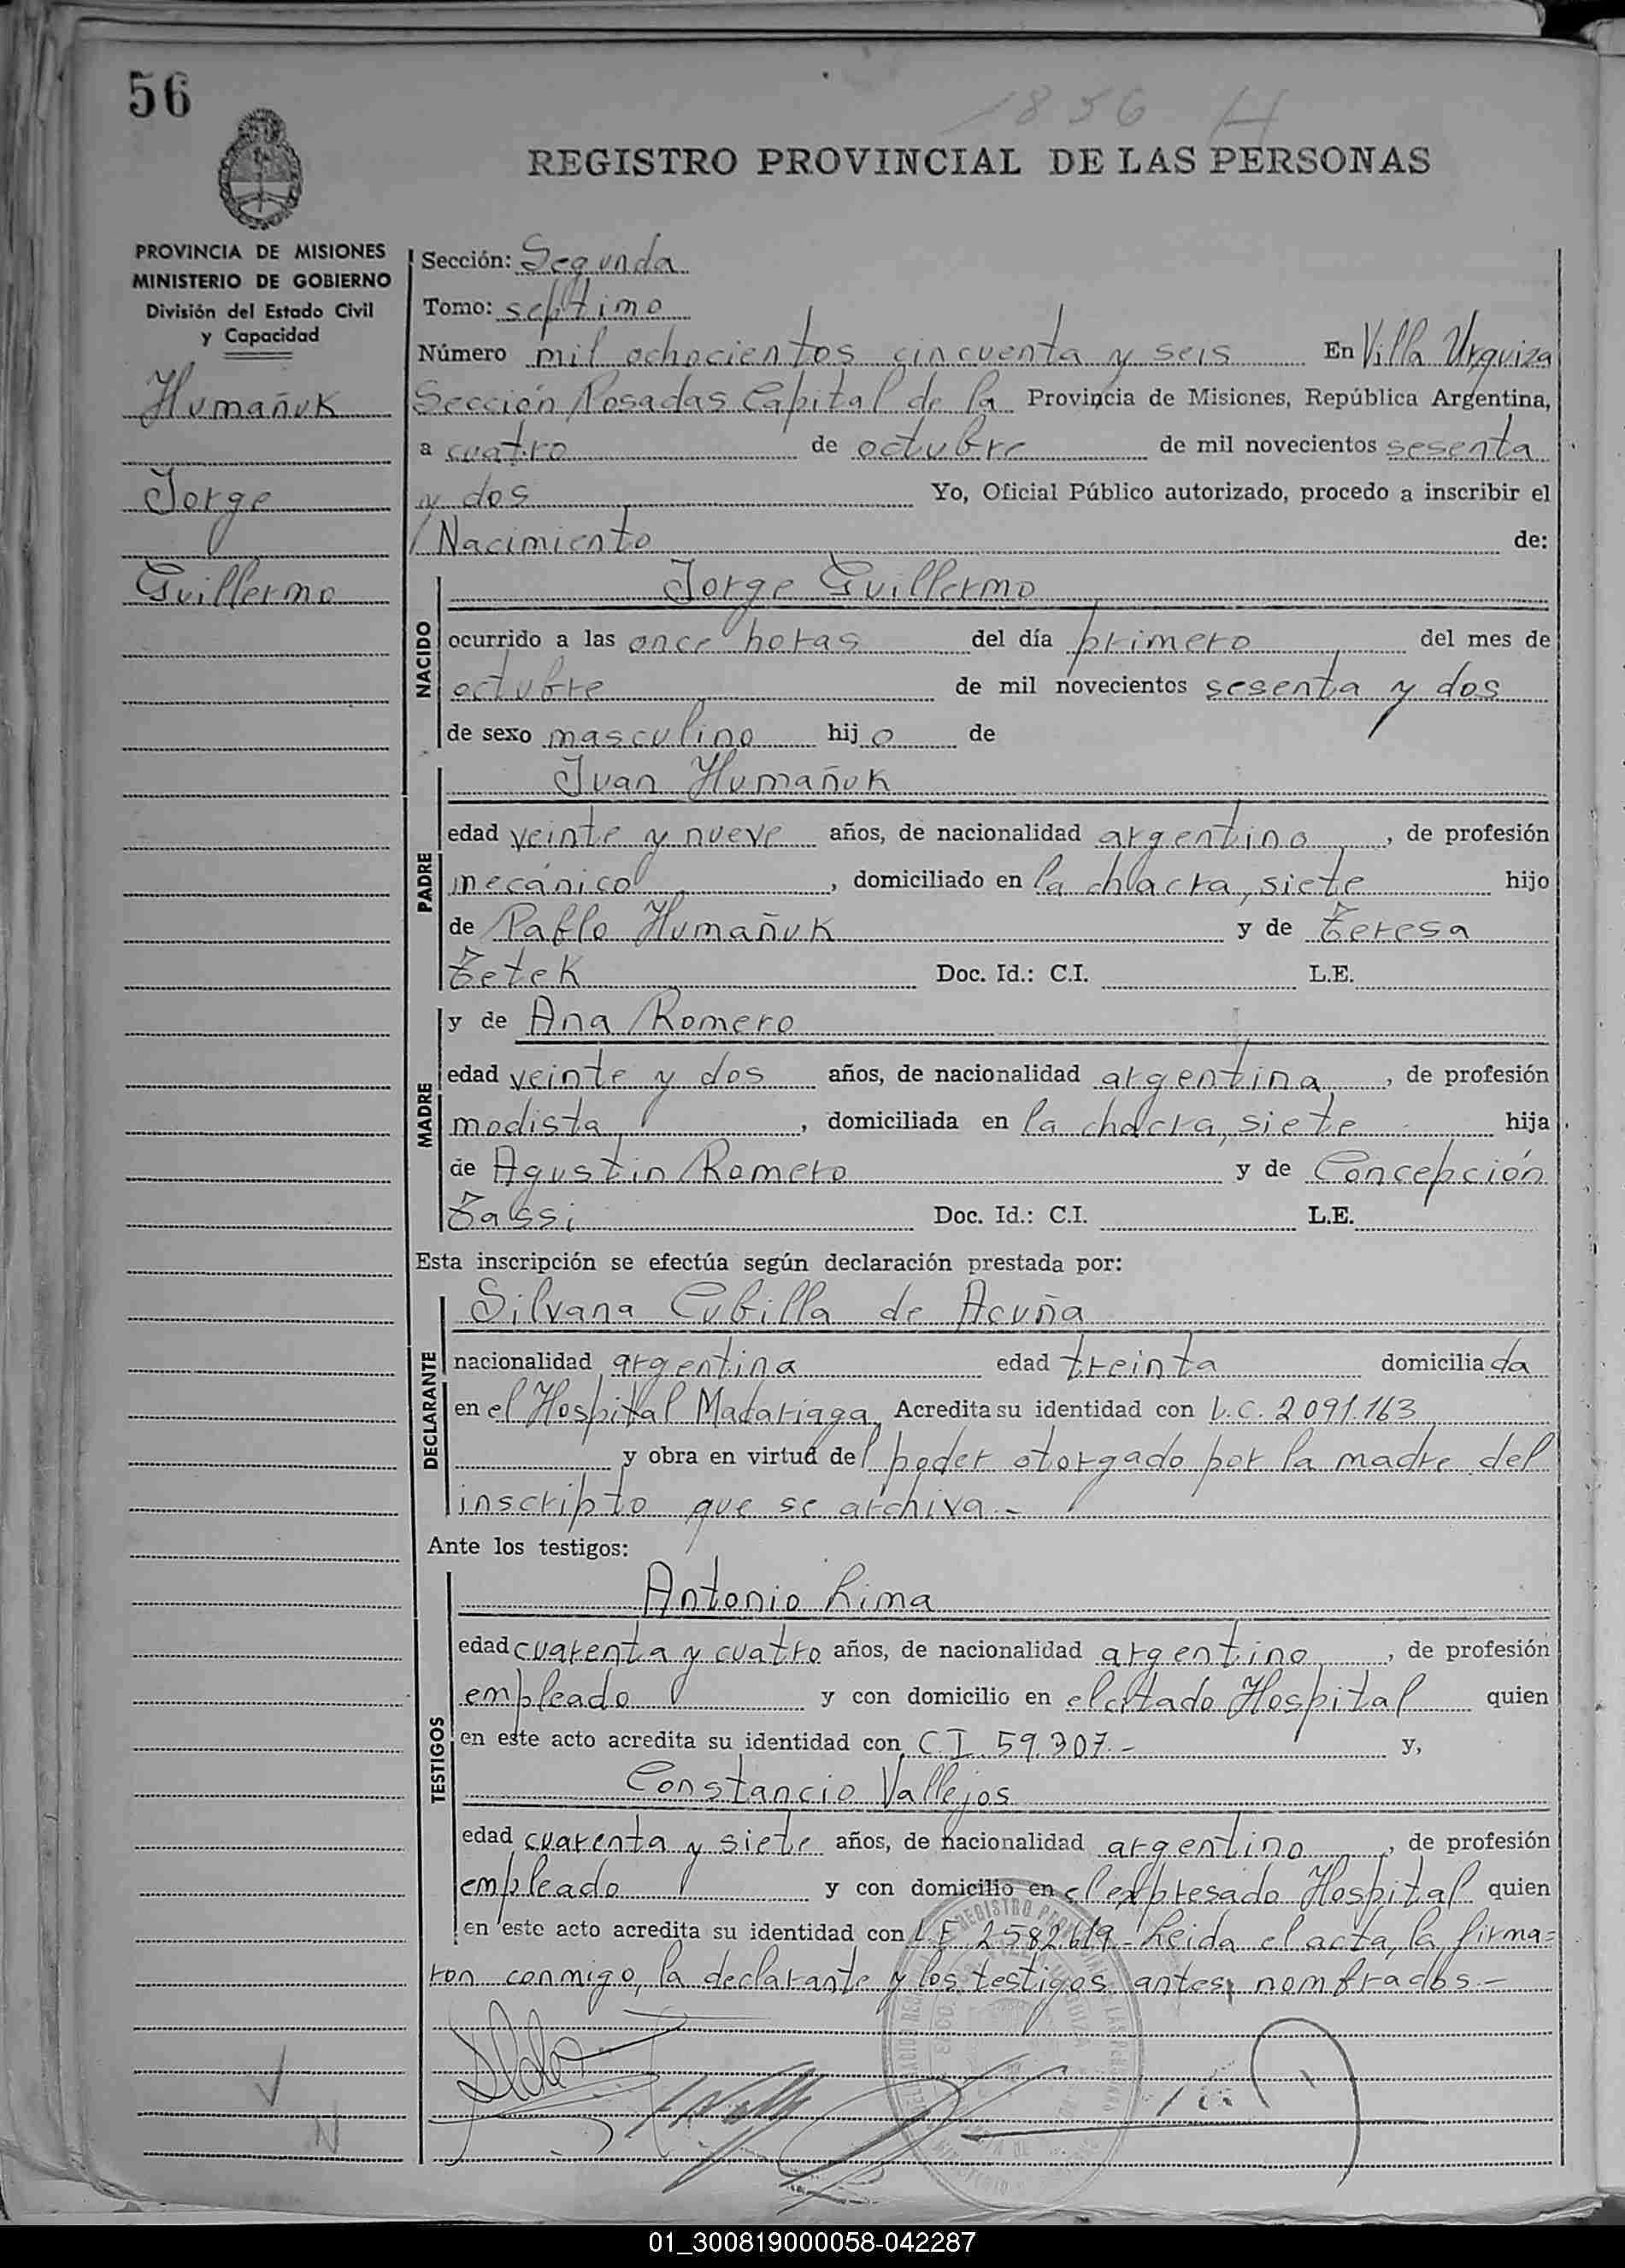 56
1856 H
REGISTRO PROVINCIAL DE LAS PERSONAS
PROVINCIA DE MISIONES
MINISTERIO DE GOBIERNO
División del Estado Civil
y Capacidad
Humañuk
Jorge
Guillermo
Sección: Segunda
Tomo: septimo
Número mil ochocientos cincuenta y seis En Villa Urquiza
Sección Posadas Capital de la Provincia de Misiones, República Argentina,
a cuatro de octubre de mil novecientos sesenta
y dos Yo, Oficial Público autorizado, procedo a inscribir el
Nacimiento de:
NACIDO
Jorge Guillermo
ocurrido a las once horas del día primero del mes de
octubre de mil novecientos sesenta y dos
de sexo masculino hijo de
PADRE
Juan Humañuk
edad veinte y nueve años, de nacionalidad argentino, de profesión
mecánico, domiciliado en la chacra, siete hijo
de Pablo Humañuk y de Teresa
Tetek Doc. Id.: C.I. L.E.
MADRE
y de Ana Romero
edad veinte y dos años, de nacionalidad argentina, de profesión
modista, domiciliada en la chacra, siete hija
de Agustin Romero y de Concepción
Tassi Doc. Id.: C.I. L.E.
Esta inscripción se efectúa según declaración prestada por:
DECLARANTE
Silvana Cubilla de Acuña
nacionalidad argentina edad treinta domiciliada
en el Hospital Madariaga, Acredita su identidad con L.C. 2091.163
y obra en virtud del poder otorgado por la madre del
inscripto que se archiva.-
Ante los testigos:
TESTIGOS
Antonio Lima
edad cuarenta y cuatro años, de nacionalidad argentino, de profesión
empleado y con domicilio en el citado Hospital quien
en este acto acredita su identidad con C.I. 59.307.- y,
Constancio Vallejos
edad cuarenta y siete años, de nacionalidad argentino, de profesión
empleado y con domicilio en el expresado Hospital quien
en este acto acredita su identidad con L.E. 2582.619 - Leida el acta, la firma=
ron conmigo, la declarante y los testigos antes nombrados.-
01_300819000058-042287